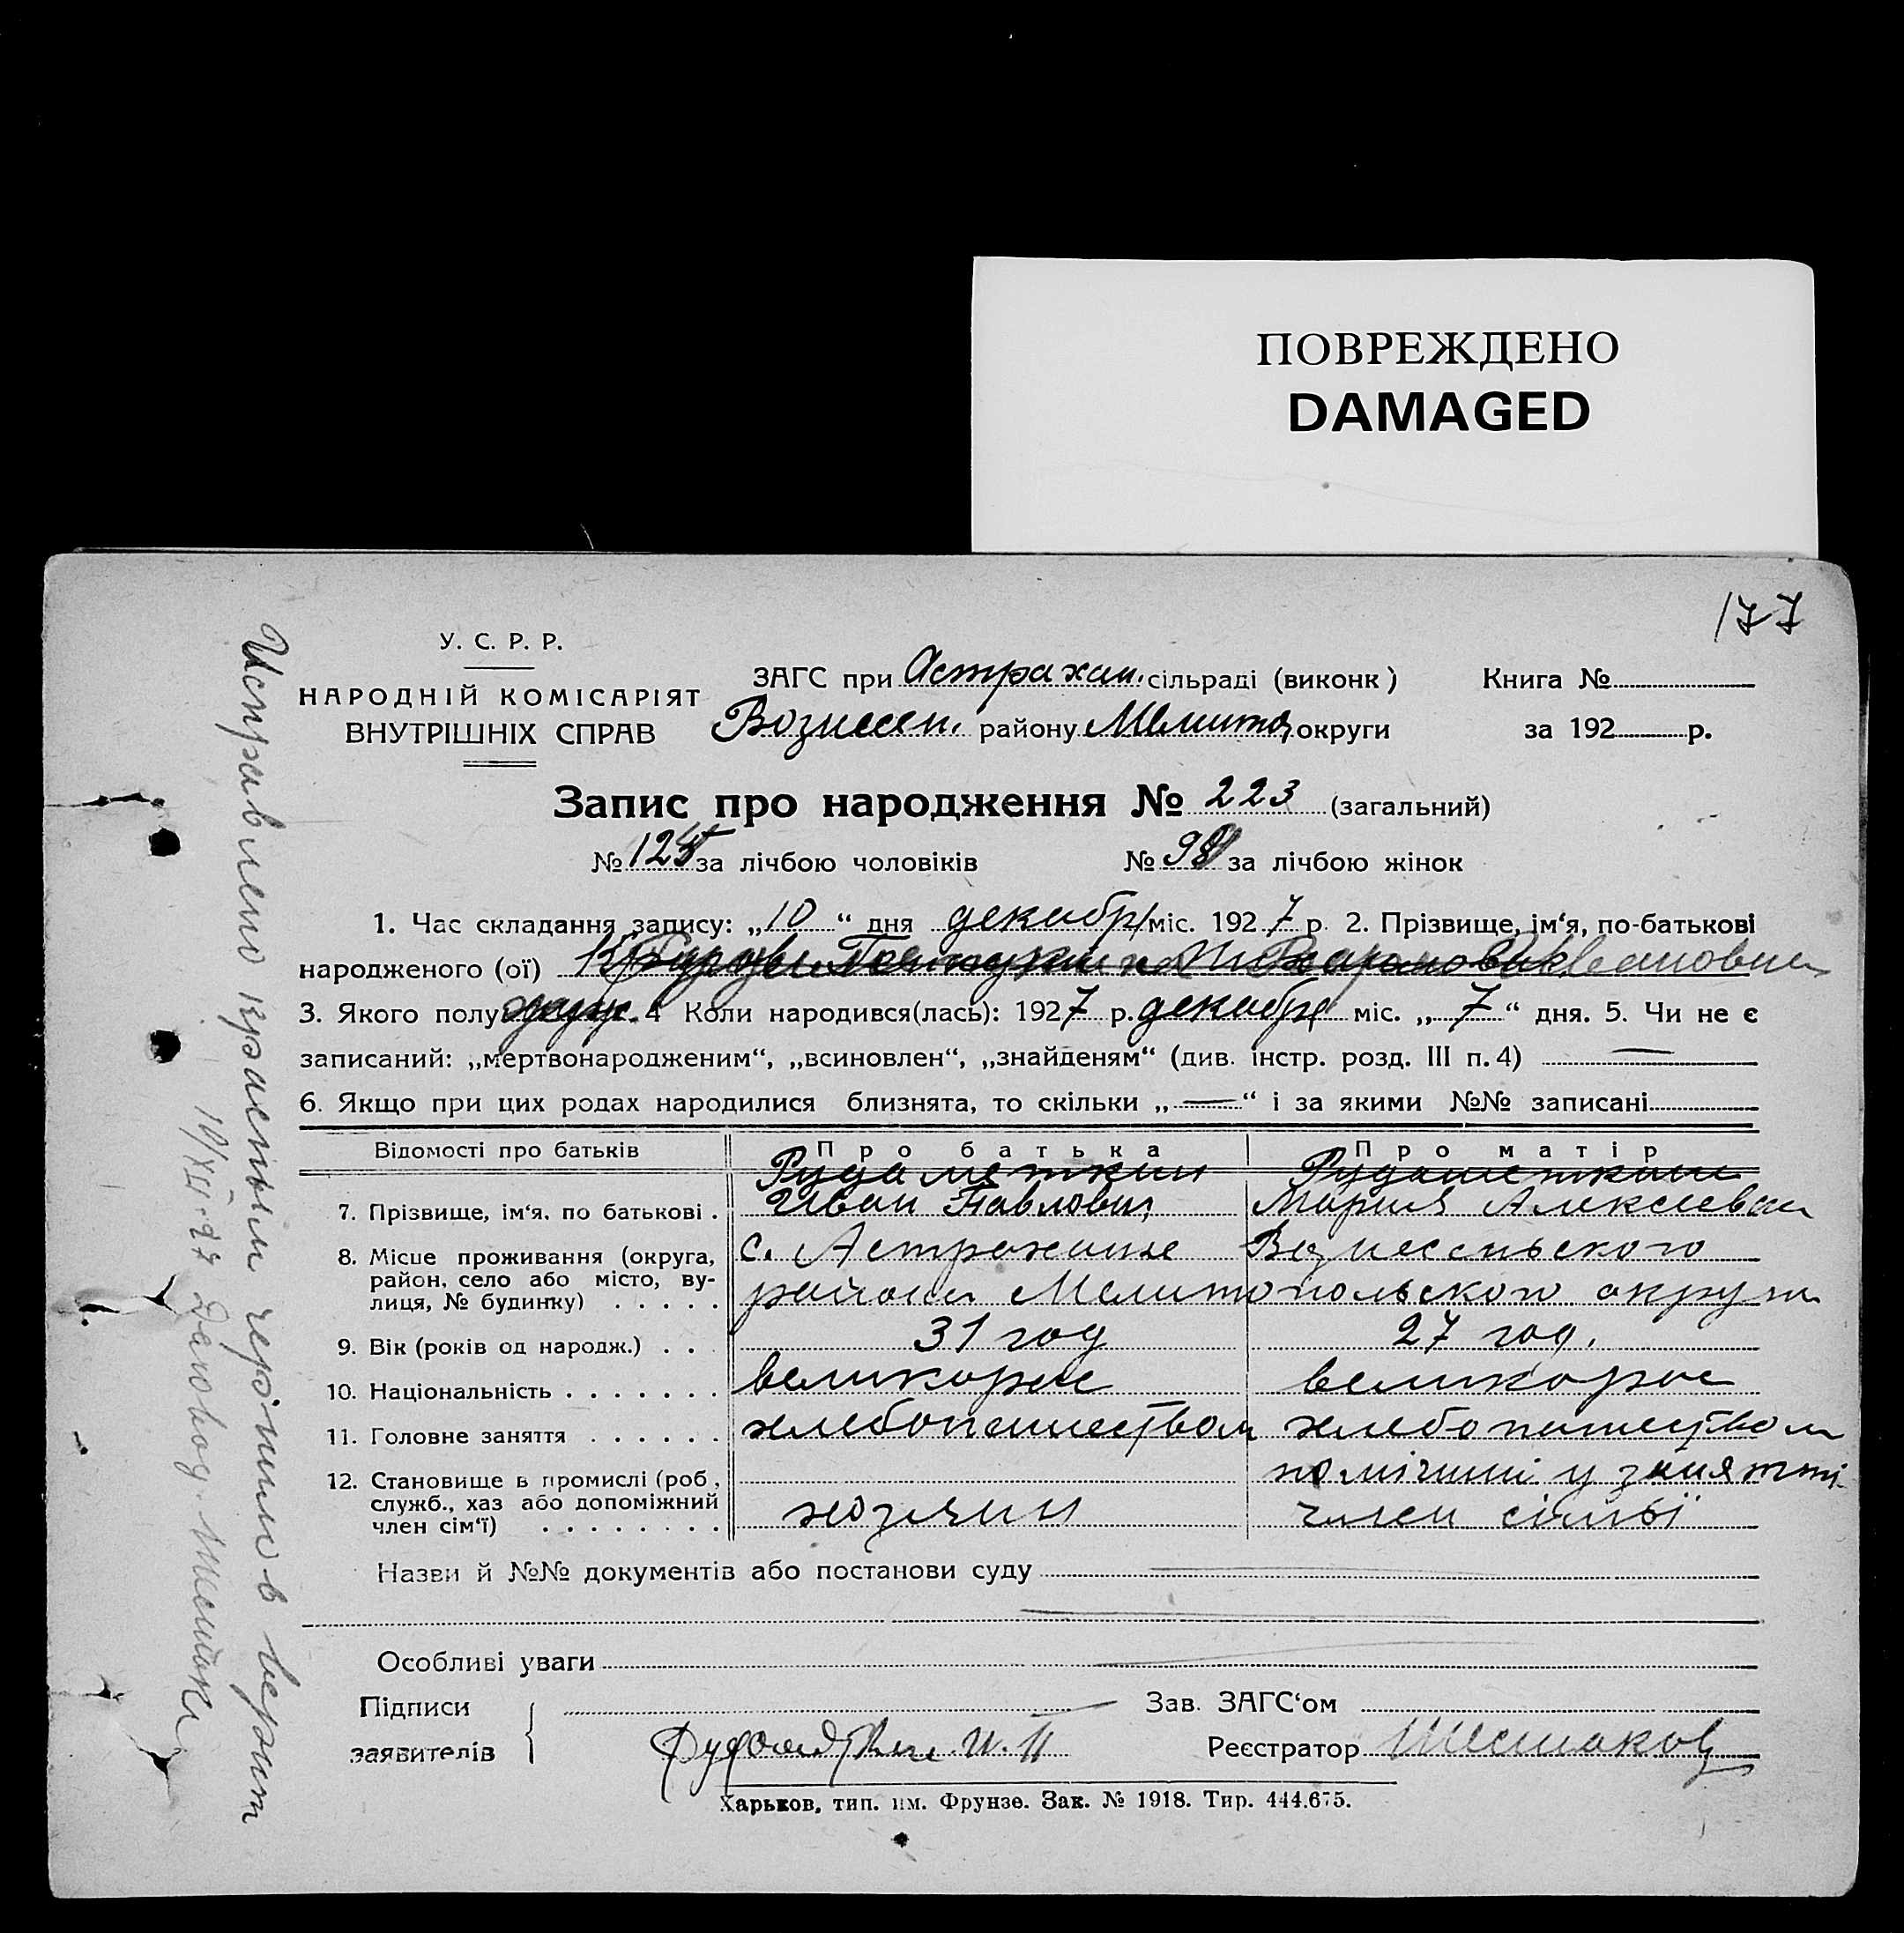 ПОВРЕЖДЕНО
DAMAGED
177
У. С. Р. Р.
НАРОДНІЙ КОМІСАРІЯТ
ВНУТРІШНІХ СПРАВ
ЗАГС при Астрахан. сільраді (виконк) Книга №
Вознесен. району Мелитоп округи за 192 р.
Запис про народження № 223 (загальний)
№ 125 за лічбою чоловіків № 98 за лічбою жінок
1. Час складання запису: „10“ дня декабря міс. 1927 р. 2. Прізвище, ім‘я, по-батькові
народженого (ої) Ивановна
3. Якого полу 4 Коли народився(лась): 1927 р. декабря міс. „7“ дня. 5. Чи не є
записаний: „мертвонародженим“, „всиновлен“, „знайденям“ (див. інстр. розд. III п. 4) —
6. Якщо при цих родах народилися близнята, то скільки „—“ і за якими №№ записані
Відомості про батьків Про батька Про матір
Рудаметкин Рудаметкина
7. Прізвище, ім‘я, по батькові . Иван Павлович Мария Алексеевна
8. Місце проживання (округа, с. Астраханке Вознесенського
район, село або місто, ву-
лиця, № будинку) . . . . . района Мелитопольского округи
9. Вік (років од народж.) . . . 31 год 27 год.
10. Національність . . . . . . . великорос великорос
11. Головне заняття . . . . . . хлебопашеством хлебопашеством
12. Становище в промислі (роб., помічниці у занятті
служб., хаз або допоміжний
член сім‘ї) . . . . . . . . хозяин член сімьї
Назви й №№ документів або постанови суду
Особливі уваги
Підписи Зав. ЗАГС‘ом
заявителів И. П Реєстратор Шестаков
Харьков, тип. им. Фрунзе. Зак. № 1918. Тир. 444.675.
Исправлено красными чернилами верить
10/XII-27